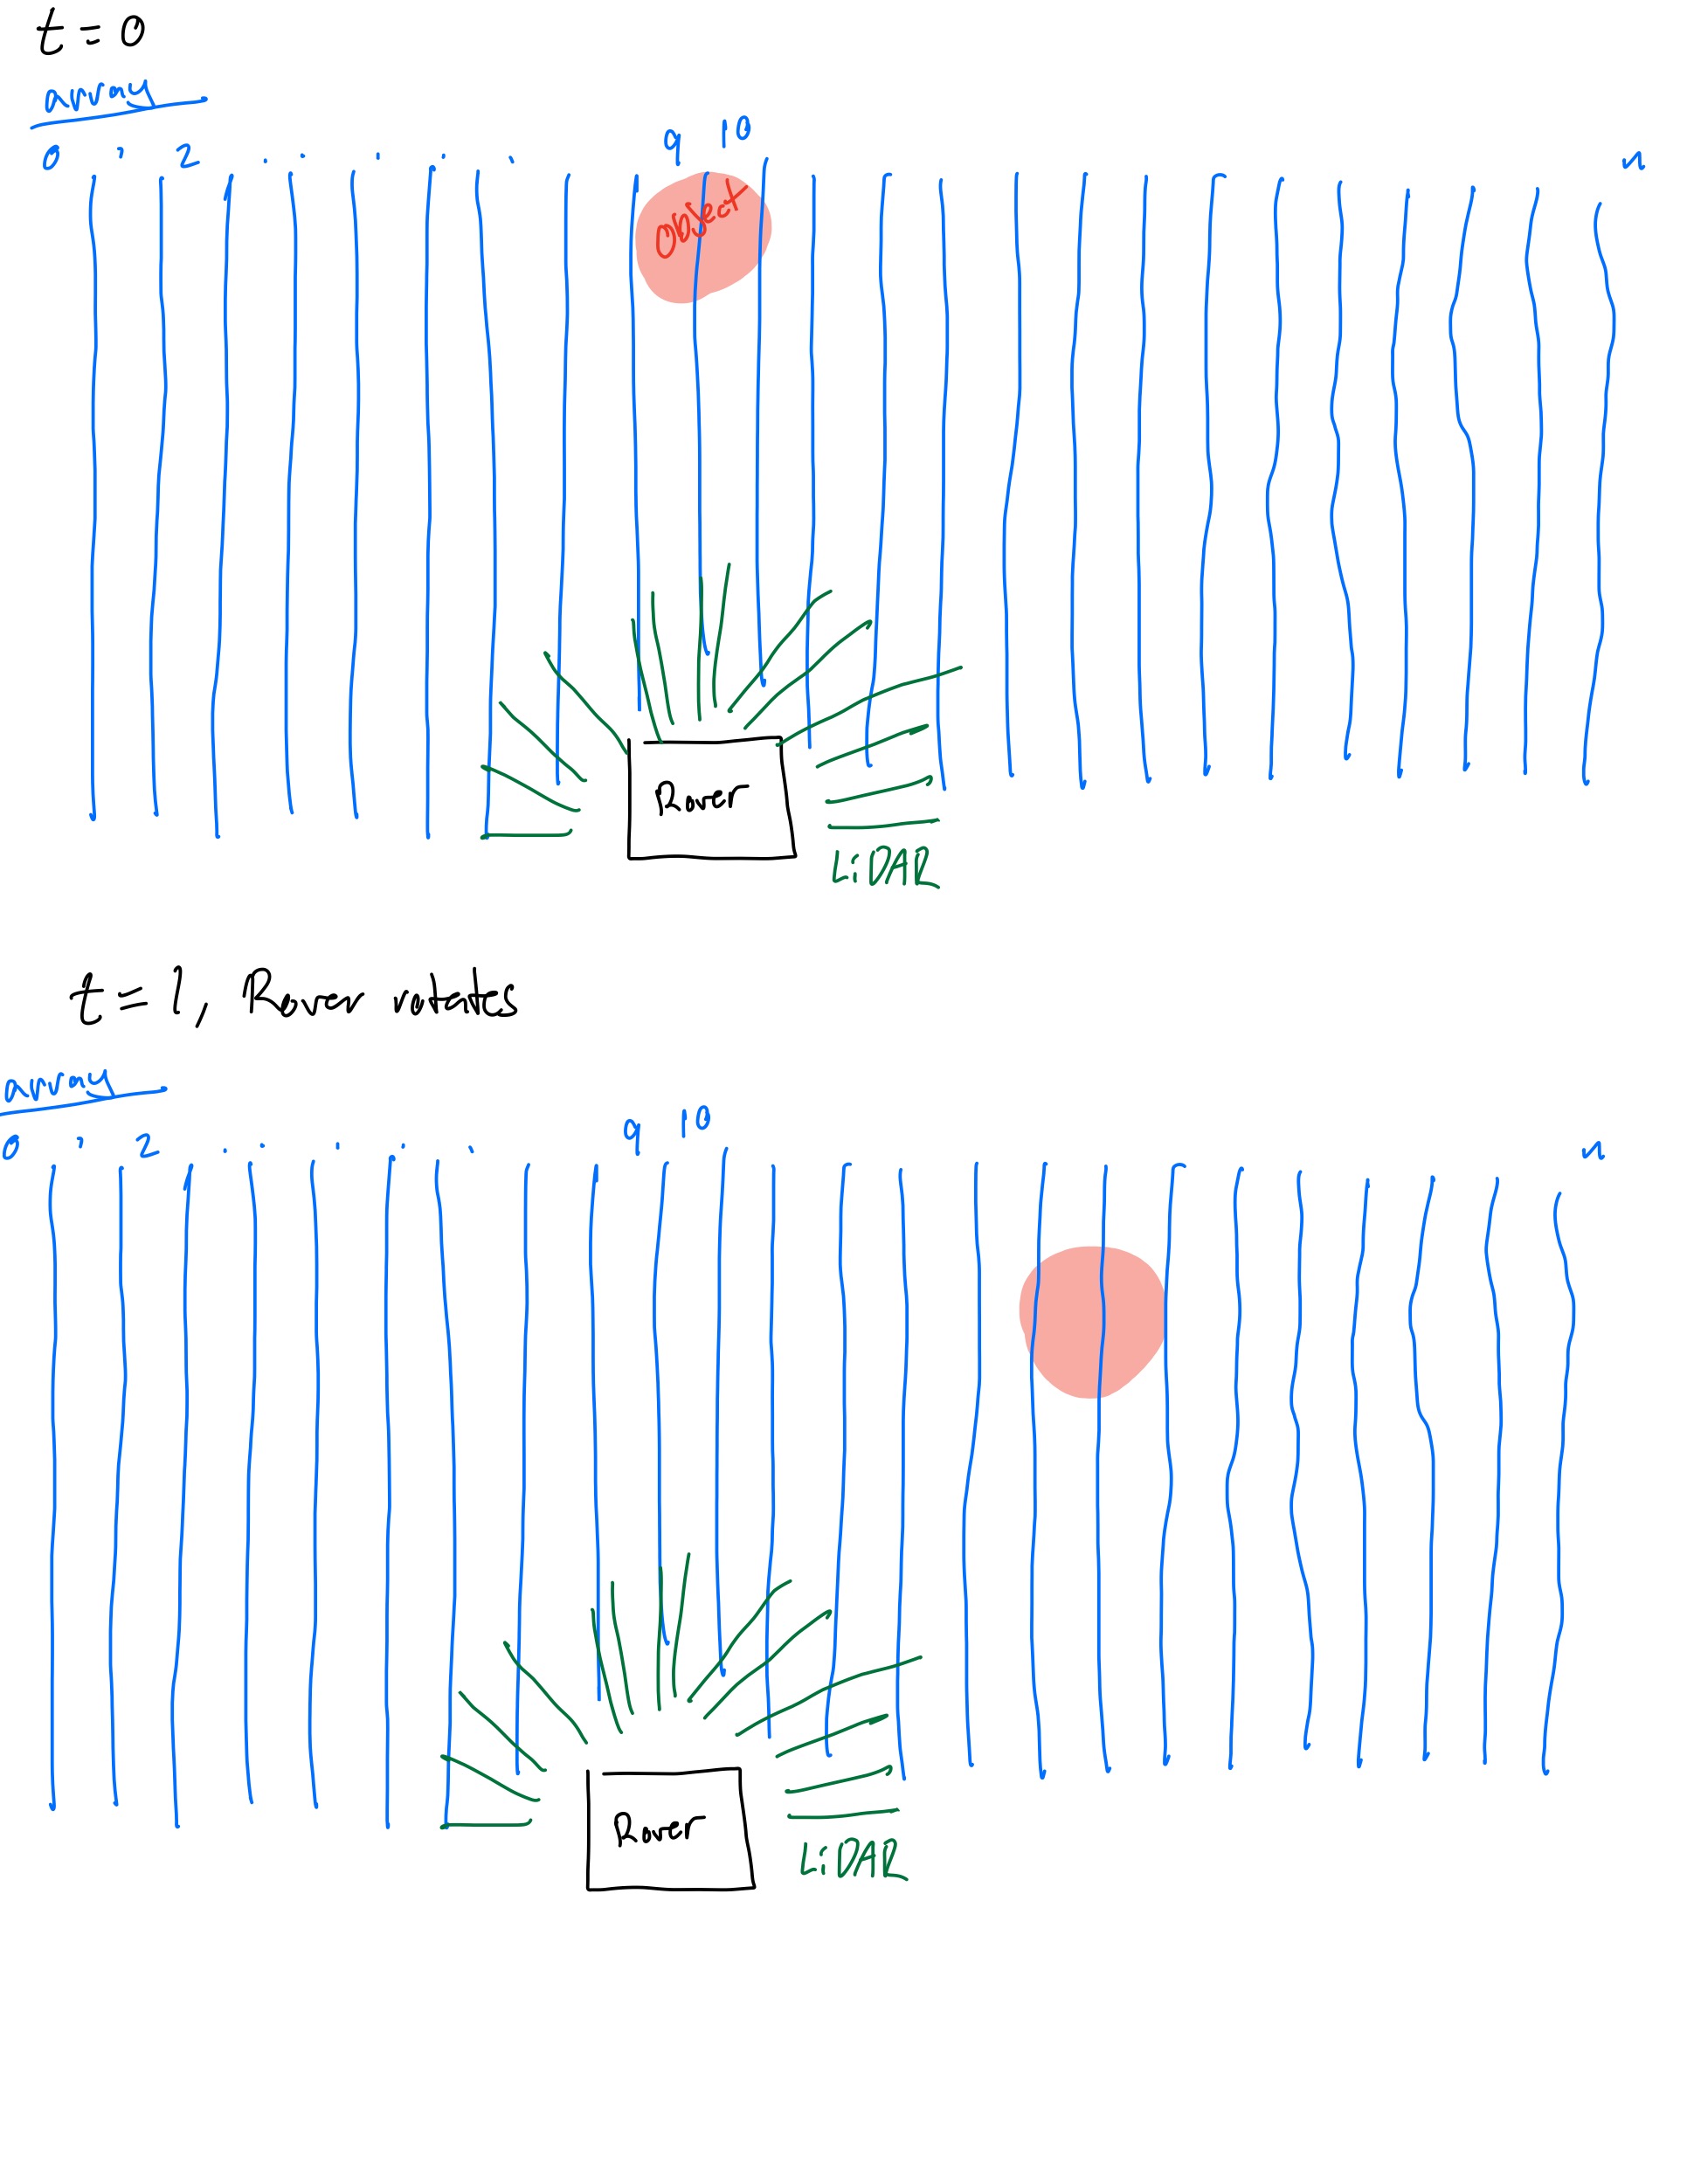 t = 0
array
0 , 2 . . . . .
9 10
n
Object
Rover
LiDAR
t = 1, Rover rotates
array
0 , 2 . . . . .
9 10
n
Rover
LiDAR